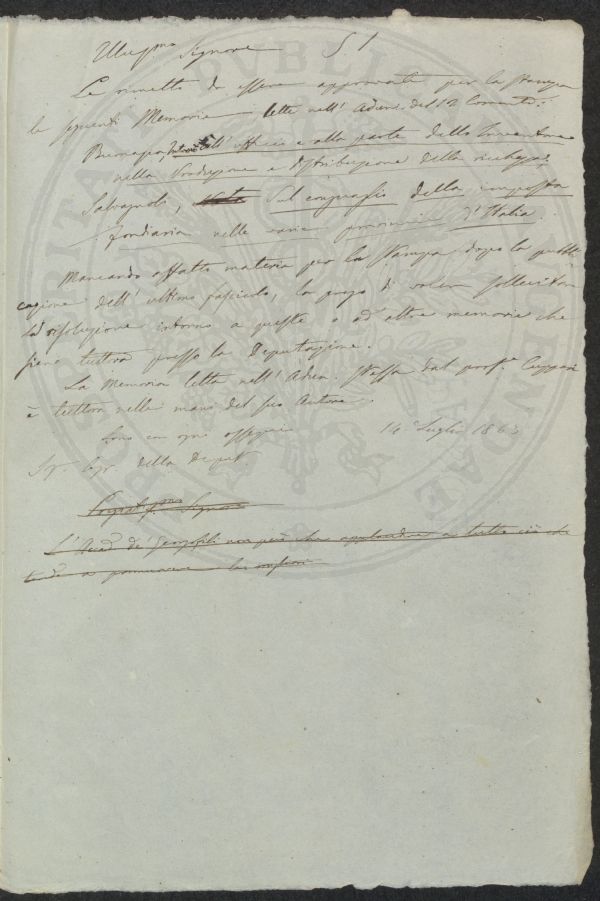 Illus.mo Signore S. I.
Le rimetto da essere approvate per la stampa
le seguenti Memorie lette nell' Adun. del 12 Corrente:
dell' ufficio e alla parte dello Inventore
nella Produzione e distribuzione della ricchezza
Salvagnoli, Sul conguaglio della imposta
fondiaria nelle varie provincie d'Italia.
Mancando affatto materia per la stampa dopo la pubbli
cazione dell' ultimo fascicolo, la prego di voler sollecitare
la risoluzione intorno a queste o ad altre memorie che
siano tuttora presso la Deputazione.
La Memoria letta nell' Adun. stessa dal prof.e Cuppari
è tuttora nelle mani del suo Autore.
Sono con ogni ossequio 14 Luglio 1863
della Deput.
Signore
L' Accad. de' Georgofili non può che applaudire a tutto ciò che
tende a promuovere